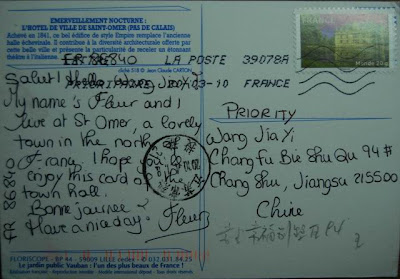 EMERVEILLEMENT NOCTURNE :
L'HOTEL DE VILLE DE SAINT-OMER (PAS DE CALAIS)
Achevé en 1841, ce bel édifice de style Empire remplace l'ancienne
halle échevinale. Il contribue à la diversité architecturale offerte par
cette belle ville et présente la particularité de receler un étonnant
théâtre à l'italienne.
FR 86840
LA POSTE 39078A
cliché 518 © Jean Claude CARTON
PRIORITAIRE 20-03-10 FRANCE
Monde 20 g
Salut! Hello Wang Jia Yi
My name's Fleur and I
live at St Omer, a lovely
town in the north of
France, I hope you'll
enjoy this card of the
town Hall.
Bonne journée
Have a nice day.
Fleur
FR 86840
PRIORITY
Wang Jia Yi
Chang Fu Bie Shu Qu 94#
Chang Shu, Jiangsu 215500
Chine
FLORISCOPE - BP 44 - 59009 LILLE cedex
Le jardin public Vauban : l'un des plus beaux de France !